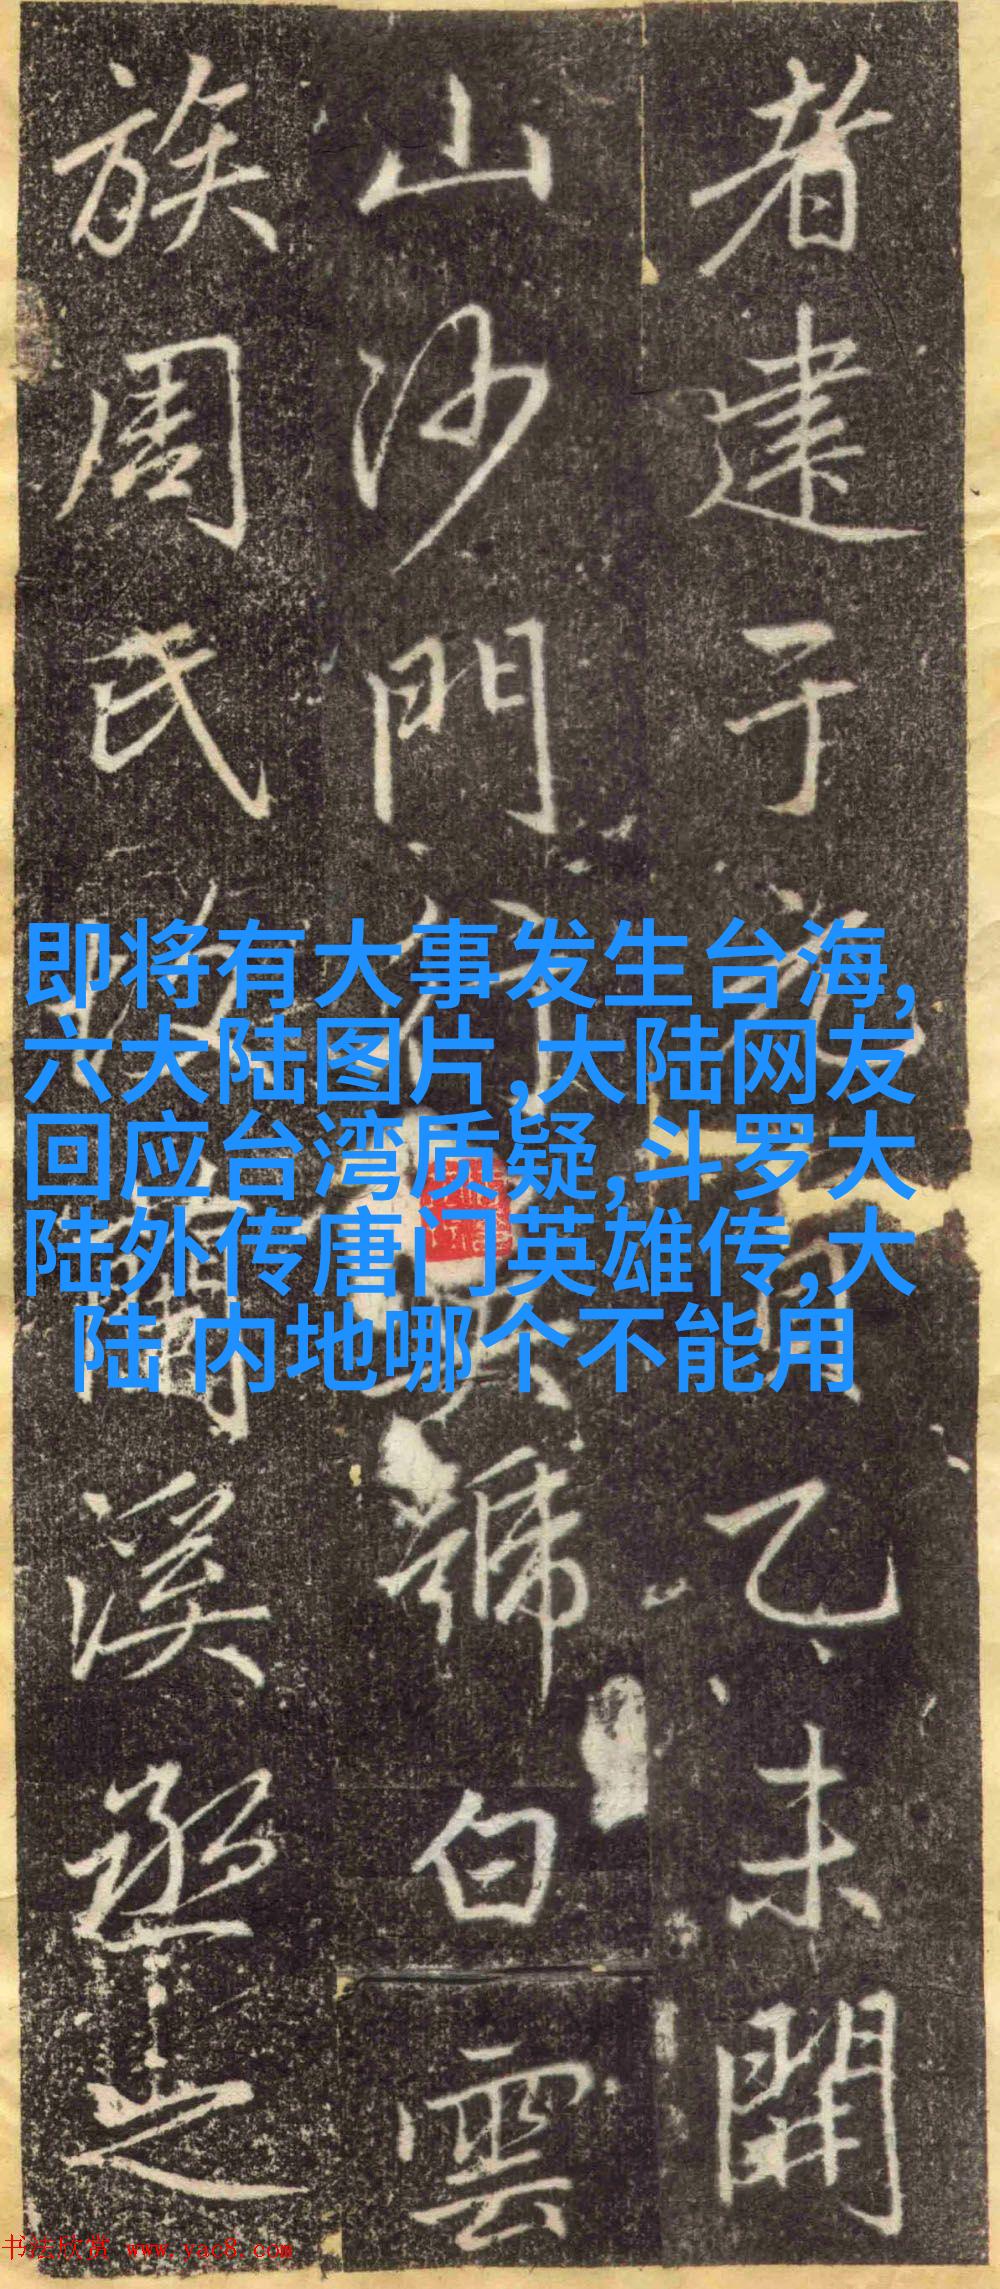 者建于乙未開
山沙門行號白雲
族周氏蘭溪丞之
即将有大事发生台海,
六大陆图片,大陆网友
回应台湾质疑,斗罗大
陆外传唐门英雄传,大
陆 内地哪个不能用
书法欣赏 www.yac8.com